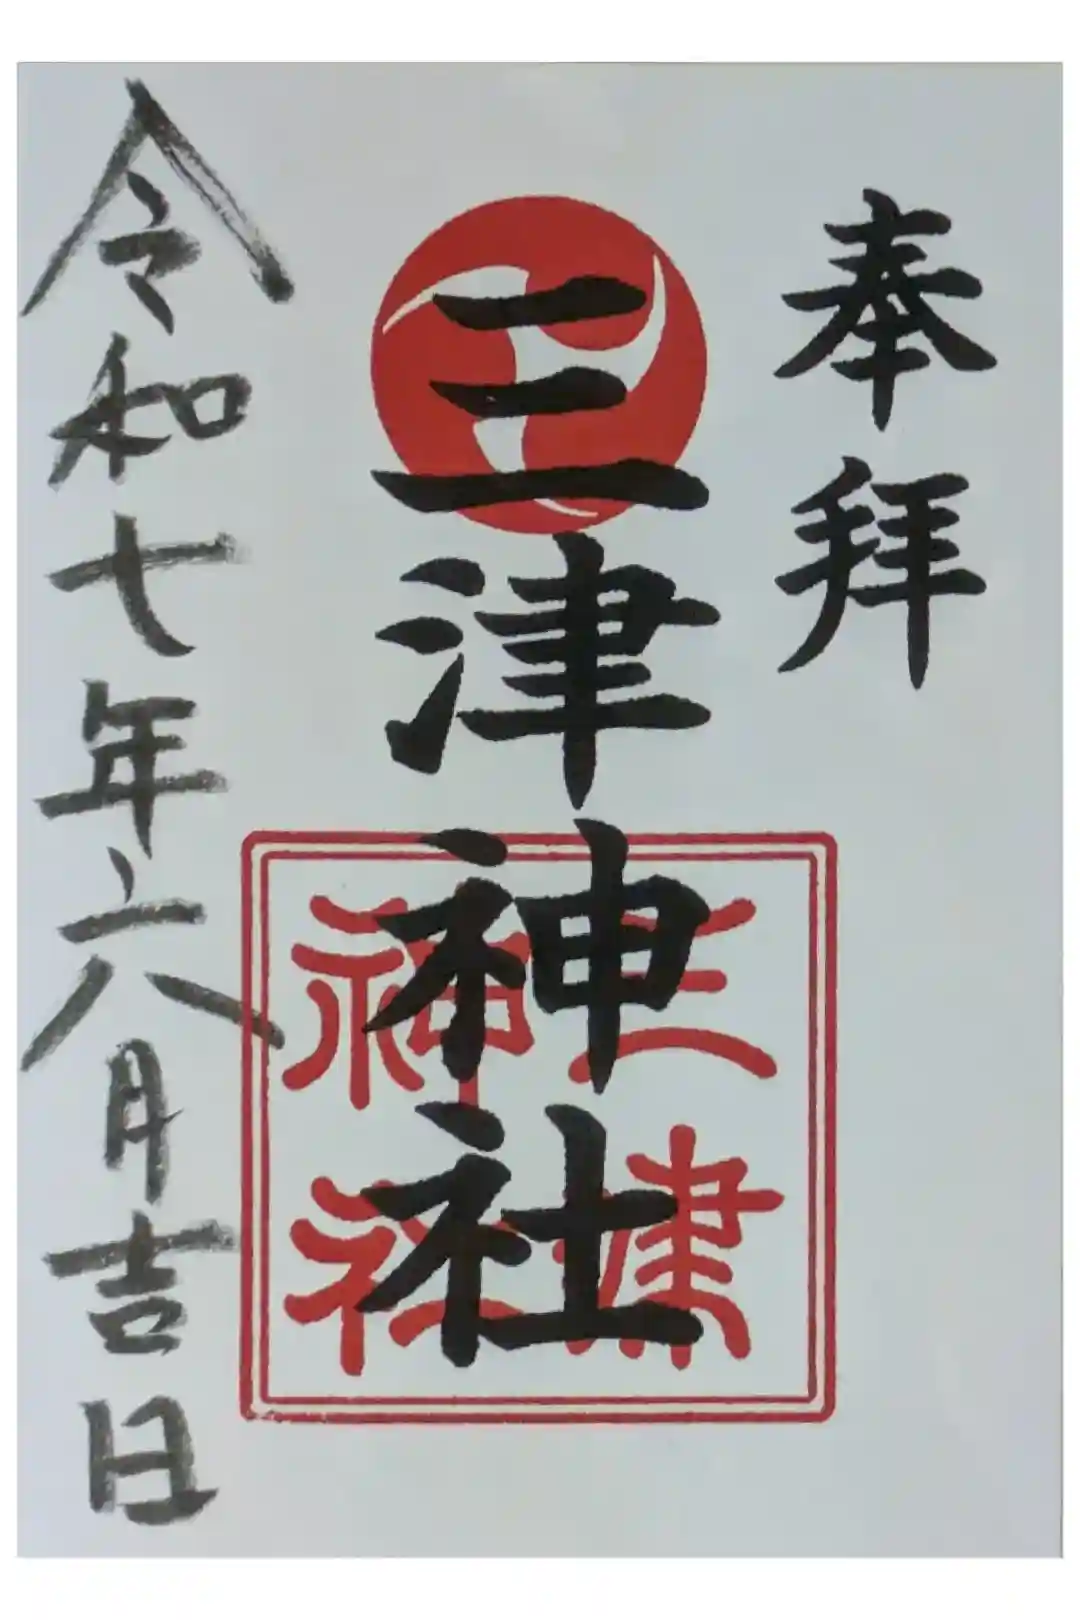 奉拝
三津神社
三津
神社
令和七年六月吉日